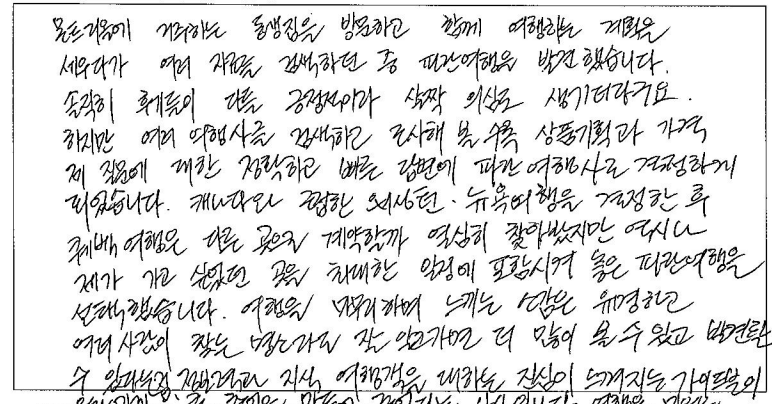 몬트리올에 거주하는 동생집을 방문하고 함께 여행하는 계획을
세우다가 여러 자료를 검색하던 중 파란여행을 발견했습니다.
솔직히 후기들이 다들 긍정적이라 살짝 의심도 생기더라구요.
하지만 여러 여행사를 검색하고 조사해 볼수록 상품기획과 가격
제 질문에 대한 정확하고 빠른 답변에 파란여행사로 결정하게
되었습니다. 캐나다와 근접한 워싱턴·뉴욕여행을 결정한 후
퀘벡여행은 다른 곳으로 계약할까 열심히 찾아봤지만 역시나
제가 가고 싶었던 곳을 최대한 일정에 포함시켜 놓은 파란여행을
선택했습니다. 여행을 마무리하며 느끼는 소감은 유명하고
여러 사람이 찾는 명소라도 잘 알고가면 더 많이 볼 수 있고 발견할
수 있다는점 지식 여행객을 대하는 진심이 느껴지는 가이드분의